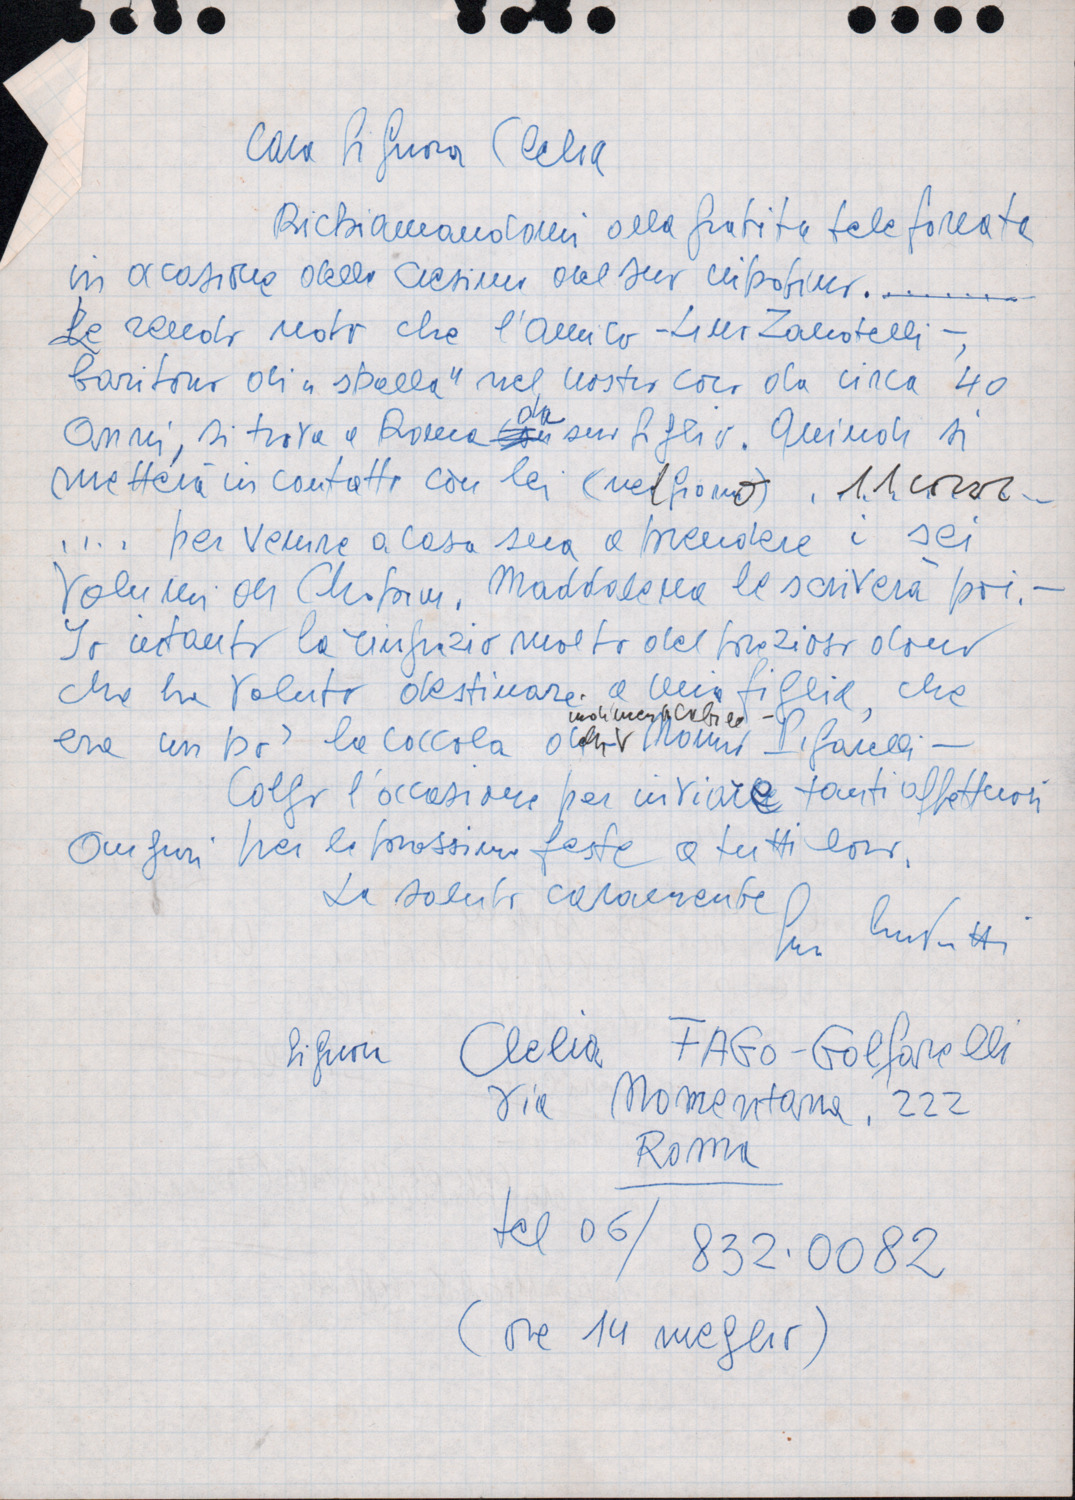 Cara Signora Clelia
Richiamandomi alla gradita telefonata
in ocasione della nascita del suo nipotino. ..........
Le rendo noto che l'amico - Lino Zanotelli -,
baritono di "spalla" nel nostro coro da circa 40
Anni, si trova a Roma da suo figlio. Quindi si
metterà in contatto con lei (nel giorno) ,
.... per venire a casa sua a prendere i sei
Volumi di Chopin. Maddalena le scriverà poi. -
Io intanto la ringrazio molto del prezioso dono
che ha voluto destinare a mia figlia, che
indimenticabile -
era un po' la coccola di Nonno Pigarelli -
Colgo l'occasione per inviare tanti affettuosi
Auguri per le prossime feste a tutti loro.
La saluto caramente

Signora Clelia FAGO-Golfarelli
Via Nomentana, 222
Roma
tel 06/ 832.0082
(ore 14 meglio)